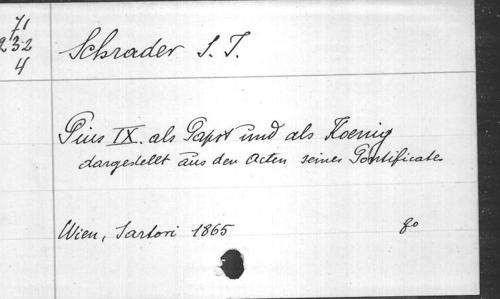 71
232
4
Schrader S. J.
Pius IX. als Papst und als Koenig
dargestellt aus den Acten seines Pontificates
Wien, Sartori 1865
8o